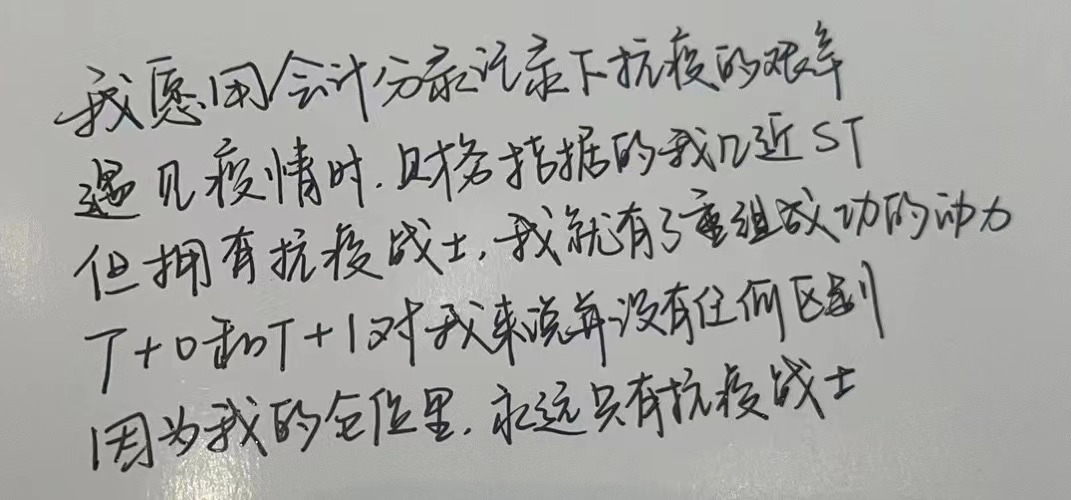 我愿用会计分录记录下抗疫的艰辛
遇见疫情时,财务拮据的我几近ST
但拥有抗疫战士,我就有了重组成功的动力
T+0和T+1对我来说并没有任何区别
因为我的仓位里,永远只有抗疫战士